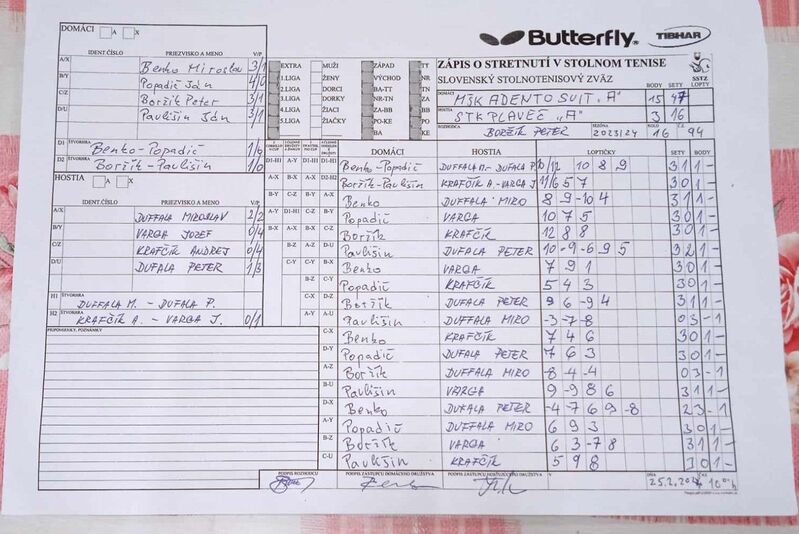 DOMÁCI A X
Butterfly. TIBHAR
IDENT.ČÍSLO PRIEZVISKO A MENO V/P
A/X Benko Miroslav 3/1
B/Y Popadič Ján 4/0
C/Z Boržík Peter 3/1
D/U Paulišin Ján 3/1
D1 ŠTVORHRA Benko-Popadič 1/0
D2 ŠTVORHRA Boržík-Paulišin 1/0
HOSTIA A X
IDENT.ČÍSLO PRIEZVISKO A MENO V/P
A/X DUFFALA MIROSLAV 2/2
B/Y VARGA JOZEF 0/4
C/Z KRAFČÍK ANDREJ 0/4
D/U DUFALA PETER 1/3
H1 ŠTVORHRA DUFFALA M. - DUFALA P.
H2 ŠTVORHRA KRAFČÍK A. - VARGA J. 0/1
PRIPOMIENKY, POZNÁMKY
EXTRA MUŽI ZÁPAD TT
1.LIGA ŽENY VÝCHOD NR
2.LIGA DORCI BA-TT TN
3.LIGA DORKY NR-TN ZA
4.LIGA ŽIACI ZA-BB BB
5.LIGA ŽIAČKY PO-KE PO
BA KE
ZÁPIS O STRETNUTÍ V STOLNOM TENISE
SLOVENSKÝ STOLNOTENISOVÝ ZVÄZ
SSTZ
DOMÁCI BODY SETY LOPTY
MŠK ADENTO SVIT "A" 15 47
HOSTIA STK PLAVEČ "A" 3 16
ROZHODCA BORŽÍK PETER SEZÓNA 2023/24 KOLO 16 Č.Z. 94
DOMÁCI HOSTIA LOPTIČKY SETY BODY
D1-H1 Benko-Popadič DUFFALA M.-DUFALA P. 10 8 9 3 1 1 -
D2-H2 Boržík-Paulišin KRAFČÍK A.-VARGA J. 11 6 5 7 3 0 1 -
Benko DUFFALA MIRO 8 9 -10 4 3 1 1 -
Popadič VARGA 10 7 5 3 0 1 -
Boržík KRAFČÍK 12 8 8 3 0 1 -
Paulišin DUFALA PETER 10 -9 -6 9 5 3 2 1 -
Benko VARGA 7 9 1 3 0 1 -
Popadič KRAFČÍK 5 4 3 3 0 1 -
Boržík DUFALA PETER 9 6 -9 4 3 1 1 -
Paulišin DUFFALA MIRO -3 -7 -8 0 3 - 1
C-X Benko KRAFČÍK 7 4 6 3 0 1 -
D-Y Popadič DUFALA PETER 7 6 3 3 0 1 -
A-Z Boržík DUFFALA MIRO -8 -4 -4 0 3 - 1
B-U Paulišin VARGA 9 -9 8 6 3 1 1 -
D-X Benko DUFALA PETER -4 -7 6 9 -8 2 3 - 1
A-Y Popadič DUFFALA MIRO 6 9 3 3 0 1 -
B-Z Boržík VARGA 6 3 -7 8 3 1 1 -
C-U Paulišin KRAFČÍK 5 9 8 3 0 1 -
PODPIS ROZHODCU PODPIS ZÁSTUPCU DOMÁCEHO DRUŽSTVA PODPIS ZÁSTUPCU HOSŤUJÚCEHO DRUŽSTVA V DŇA